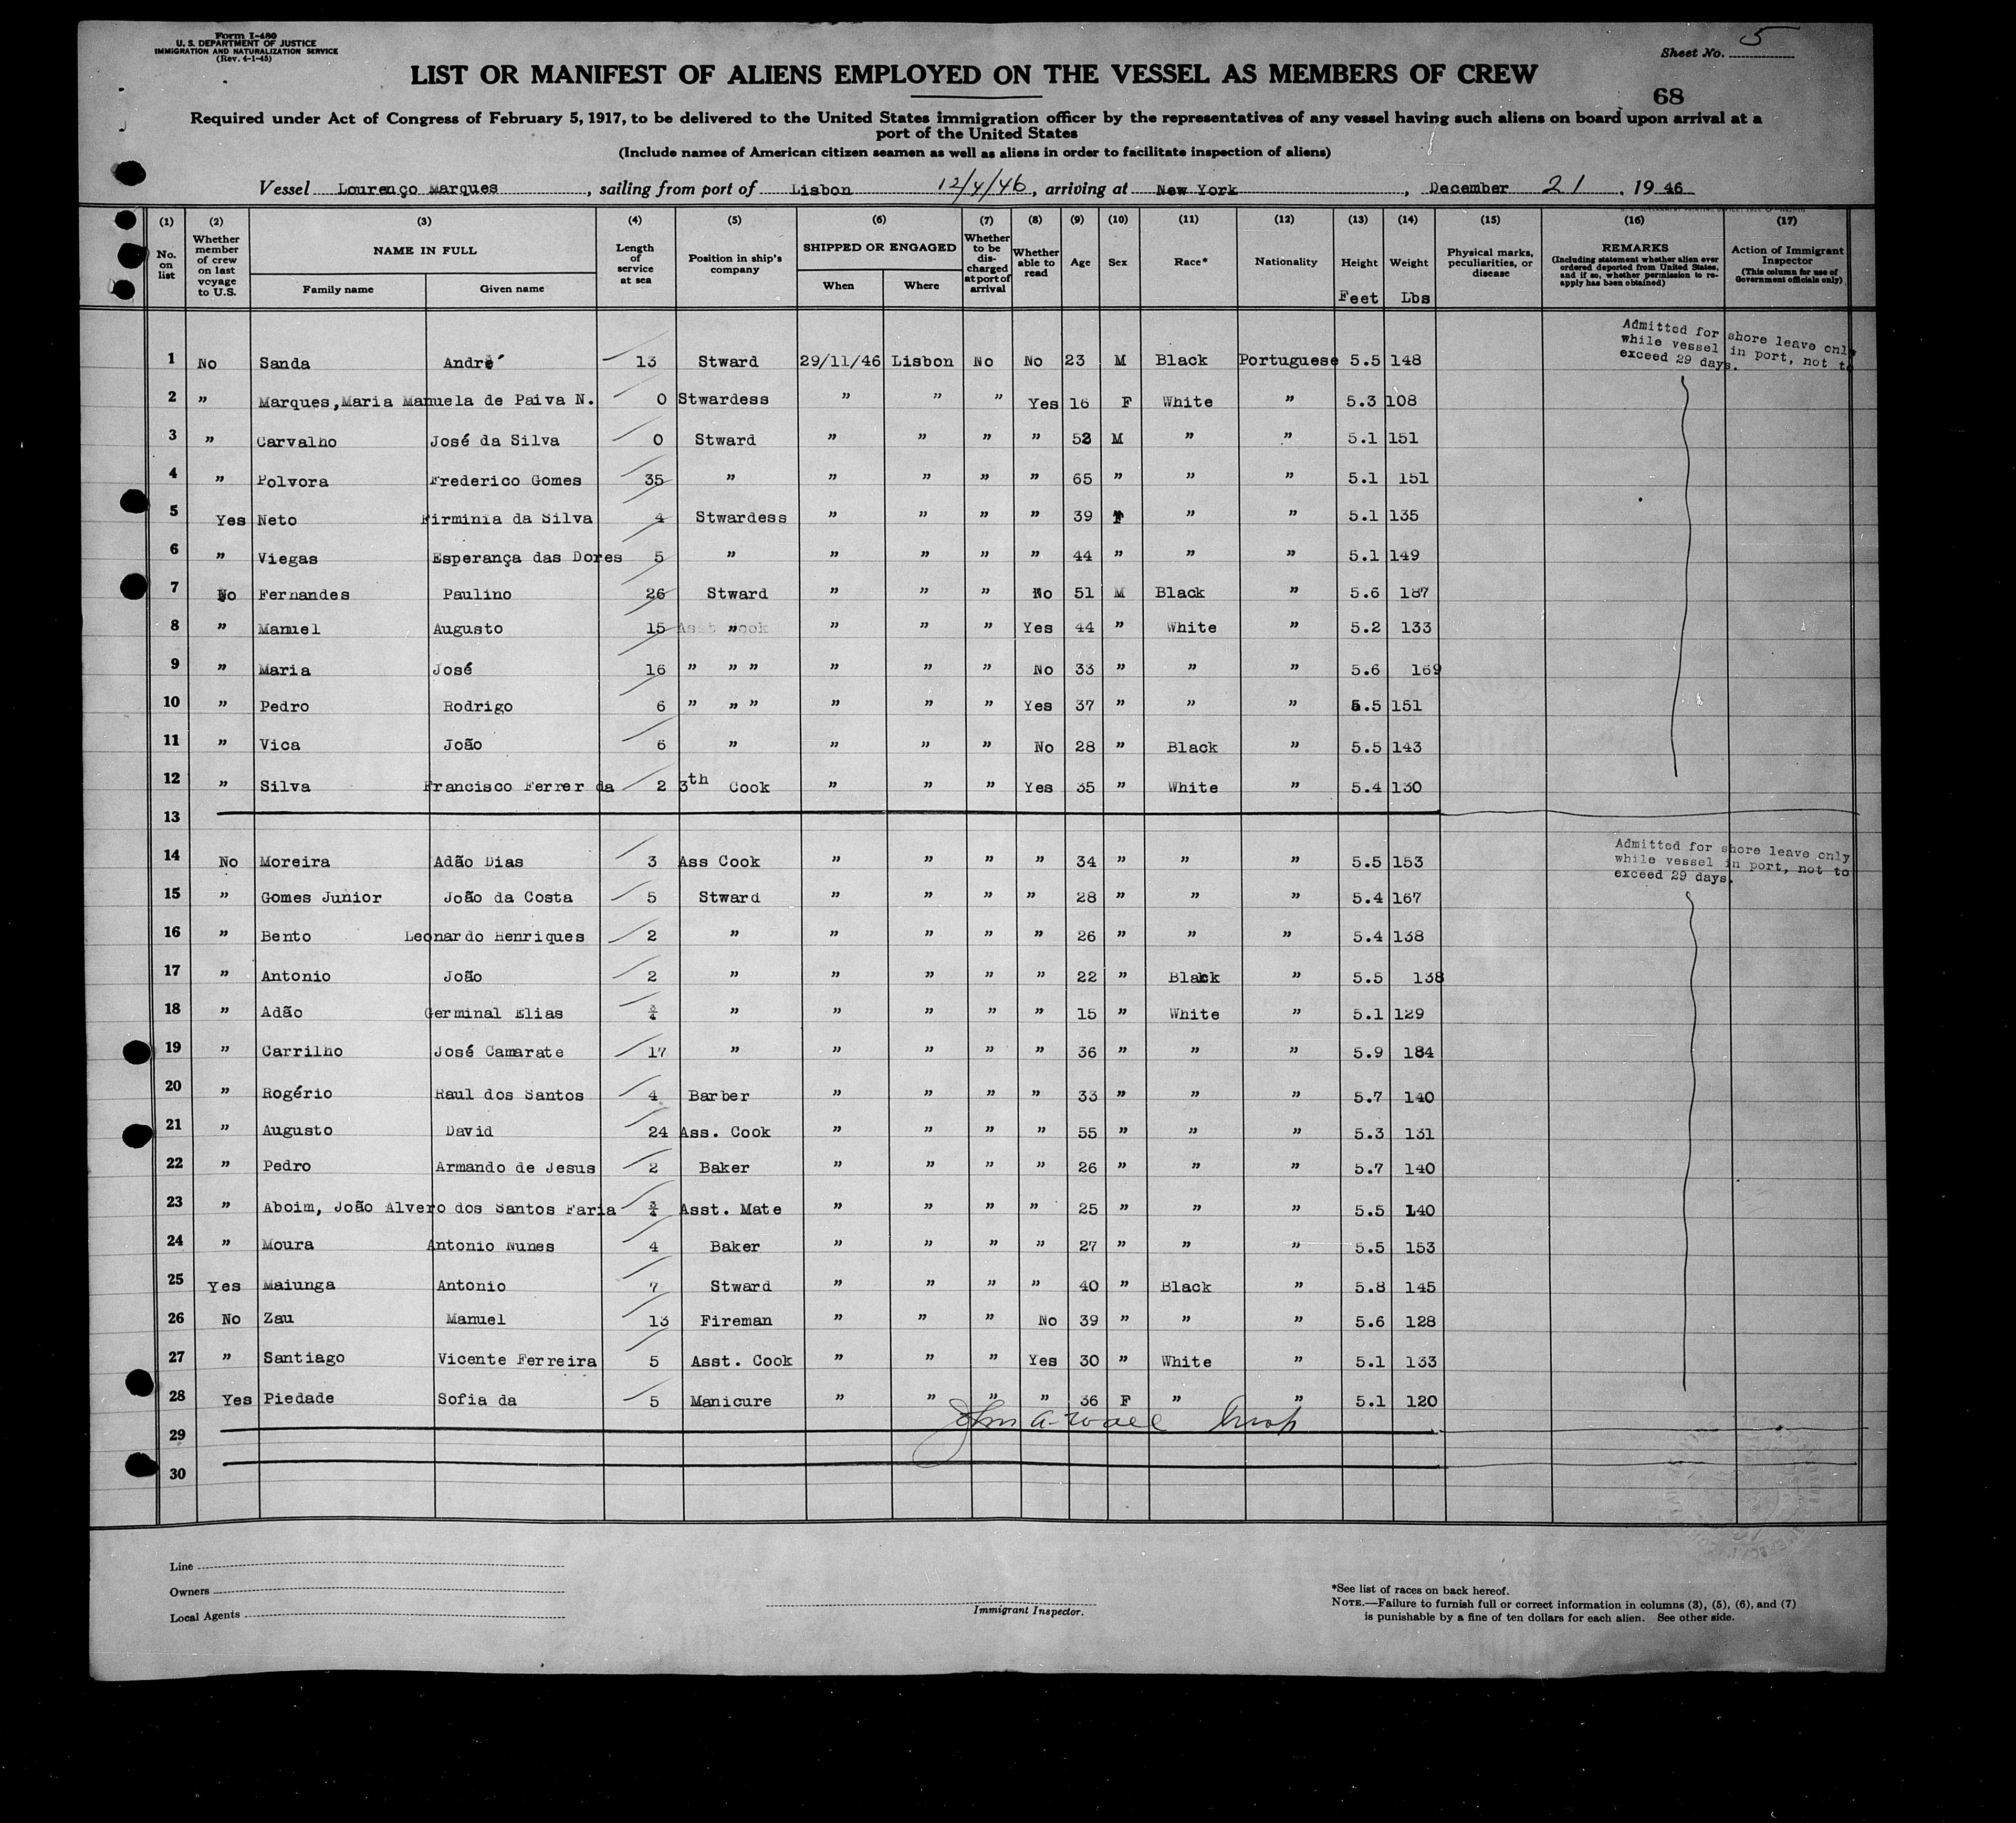 Form I-480
U. S. DEPARTMENT OF JUSTICE
IMMIGRATION AND NATURALIZATION SERVICE
(Rev. 4-1-45)
Sheet No. 5
LIST OR MANIFEST OF ALIENS EMPLOYED ON THE VESSEL AS MEMBERS OF CREW
68
Required under Act of Congress of February 5, 1917, to be delivered to the United States immigration officer by the representatives of any vessel having such aliens on board upon arrival at a
port of the United States
(Include names of American citizen seamen as well as aliens in order to facilitate inspection of aliens)
Vessel Lourenço Marques, sailing from port of Lisbon 12/4/46, arriving at New York, December 21, 19 46
(1) No. on list
(2) Whether member of crew on last voyage to U.S.
(3) NAME IN FULL Family name Given name
(4) Length of service at sea
(5) Position in ship's company
(6) SHIPPED OR ENGAGED When Where
(7) Whether to be discharged at port of arrival
(8) Whether able to read
(9) Age
(10) Sex
(11) Race*
(12) Nationality
(13) Height Feet
(14) Weight Lbs
(15) Physical marks, peculiarities, or disease
(16) REMARKS (Including statement whether alien ever ordered deported from United States, and if so, whether permission to reapply has been obtained)
(17) Action of Immigrant Inspector (This column for use of Government officials only)
Admitted for shore leave only
while vessel in port, not to
exceed 29 days.
1 No Sanda André 13 Stward 29/11/46 Lisbon No No 23 M Black Portuguese 5.5 148
2 " Marques, Maria Manuela de Paiva N. 0 Stwardess " " " Yes 16 F White " 5.3 108
3 " Carvalho José da Silva 0 Stward " " " " 53 M " " 5.1 151
4 " Polvora Frederico Gomes 35 " " " " " 65 " " " 5.1 151
5 Yes Neto Firminia da Silva 4 Stwardess " " " " 39 F " " 5.1 135
6 " Viegas Esperança das Dores 5 " " " " " 44 " " " 5.1 149
7 No Fernandes Paulino 26 Stward " " " No 51 M Black " 5.6 187
8 " Manuel Augusto 15 " " " " Yes 44 " White " 5.2 133
9 " Maria José 16 " " " " " " No 33 " " " 5.6 169
10 " Pedro Rodrigo 6 " " " " " " Yes 37 " " " 5.5 151
11 " Vica João 6 " " " " No 28 " Black " 5.5 143
12 " Silva Francisco Ferrer da 2 3th Cook " " " Yes 35 " White " 5.4 130
13
14 No Moreira Adão Dias 3 Ass Cook " " " " 34 " " " 5.5 153
Admitted for shore leave only
while vessel in port, not to
exceed 29 days.
15 " Gomes Junior João da Costa 5 Stward " " " " 28 " " " 5.4 167
16 " Bento Leonardo Henriques 2 " " " " " 26 " " " 5.4 138
17 " Antonio João 2 " " " " " 22 " Black " 5.5 138
18 " Adão Germinal Elias ¾ " " " " " 15 " White " 5.1 129
19 " Carrilho José Camarate 17 " " " " " 36 " " " 5.9 184
20 " Rogério Raul dos Santos 4 Barber " " " " 33 " " " 5.7 140
21 " Augusto David 24 Ass. Cook " " " " 55 " " " 5.3 131
22 " Pedro Armando de Jesus 2 Baker " " " " 26 " " " 5.7 140
23 " Aboim, João Alvero dos Santos Faria ¾ Asst. Mate " " " " 25 " " " 5.5 140
24 " Moura Antonio Nunes 4 Baker " " " " 27 " " " 5.5 153
25 Yes Maiunga Antonio 7 Stward " " " " 40 " Black " 5.8 145
26 No Zau Manuel 13 Fireman " " " No 39 " " " 5.6 128
27 " Santiago Vicente Ferreira 5 Asst. Cook " " " Yes 30 " White " 5.1 133
28 Yes Piedade Sofia da 5 Manicure " " " " 36 F " " 5.1 120
John A.
29
30
Line
Owners
Local Agents
Immigrant Inspector.
*See list of races on back hereof.
NOTE.—Failure to furnish full or correct information in columns (3), (5), (6), and (7)
is punishable by a fine of ten dollars for each alien. See other side.